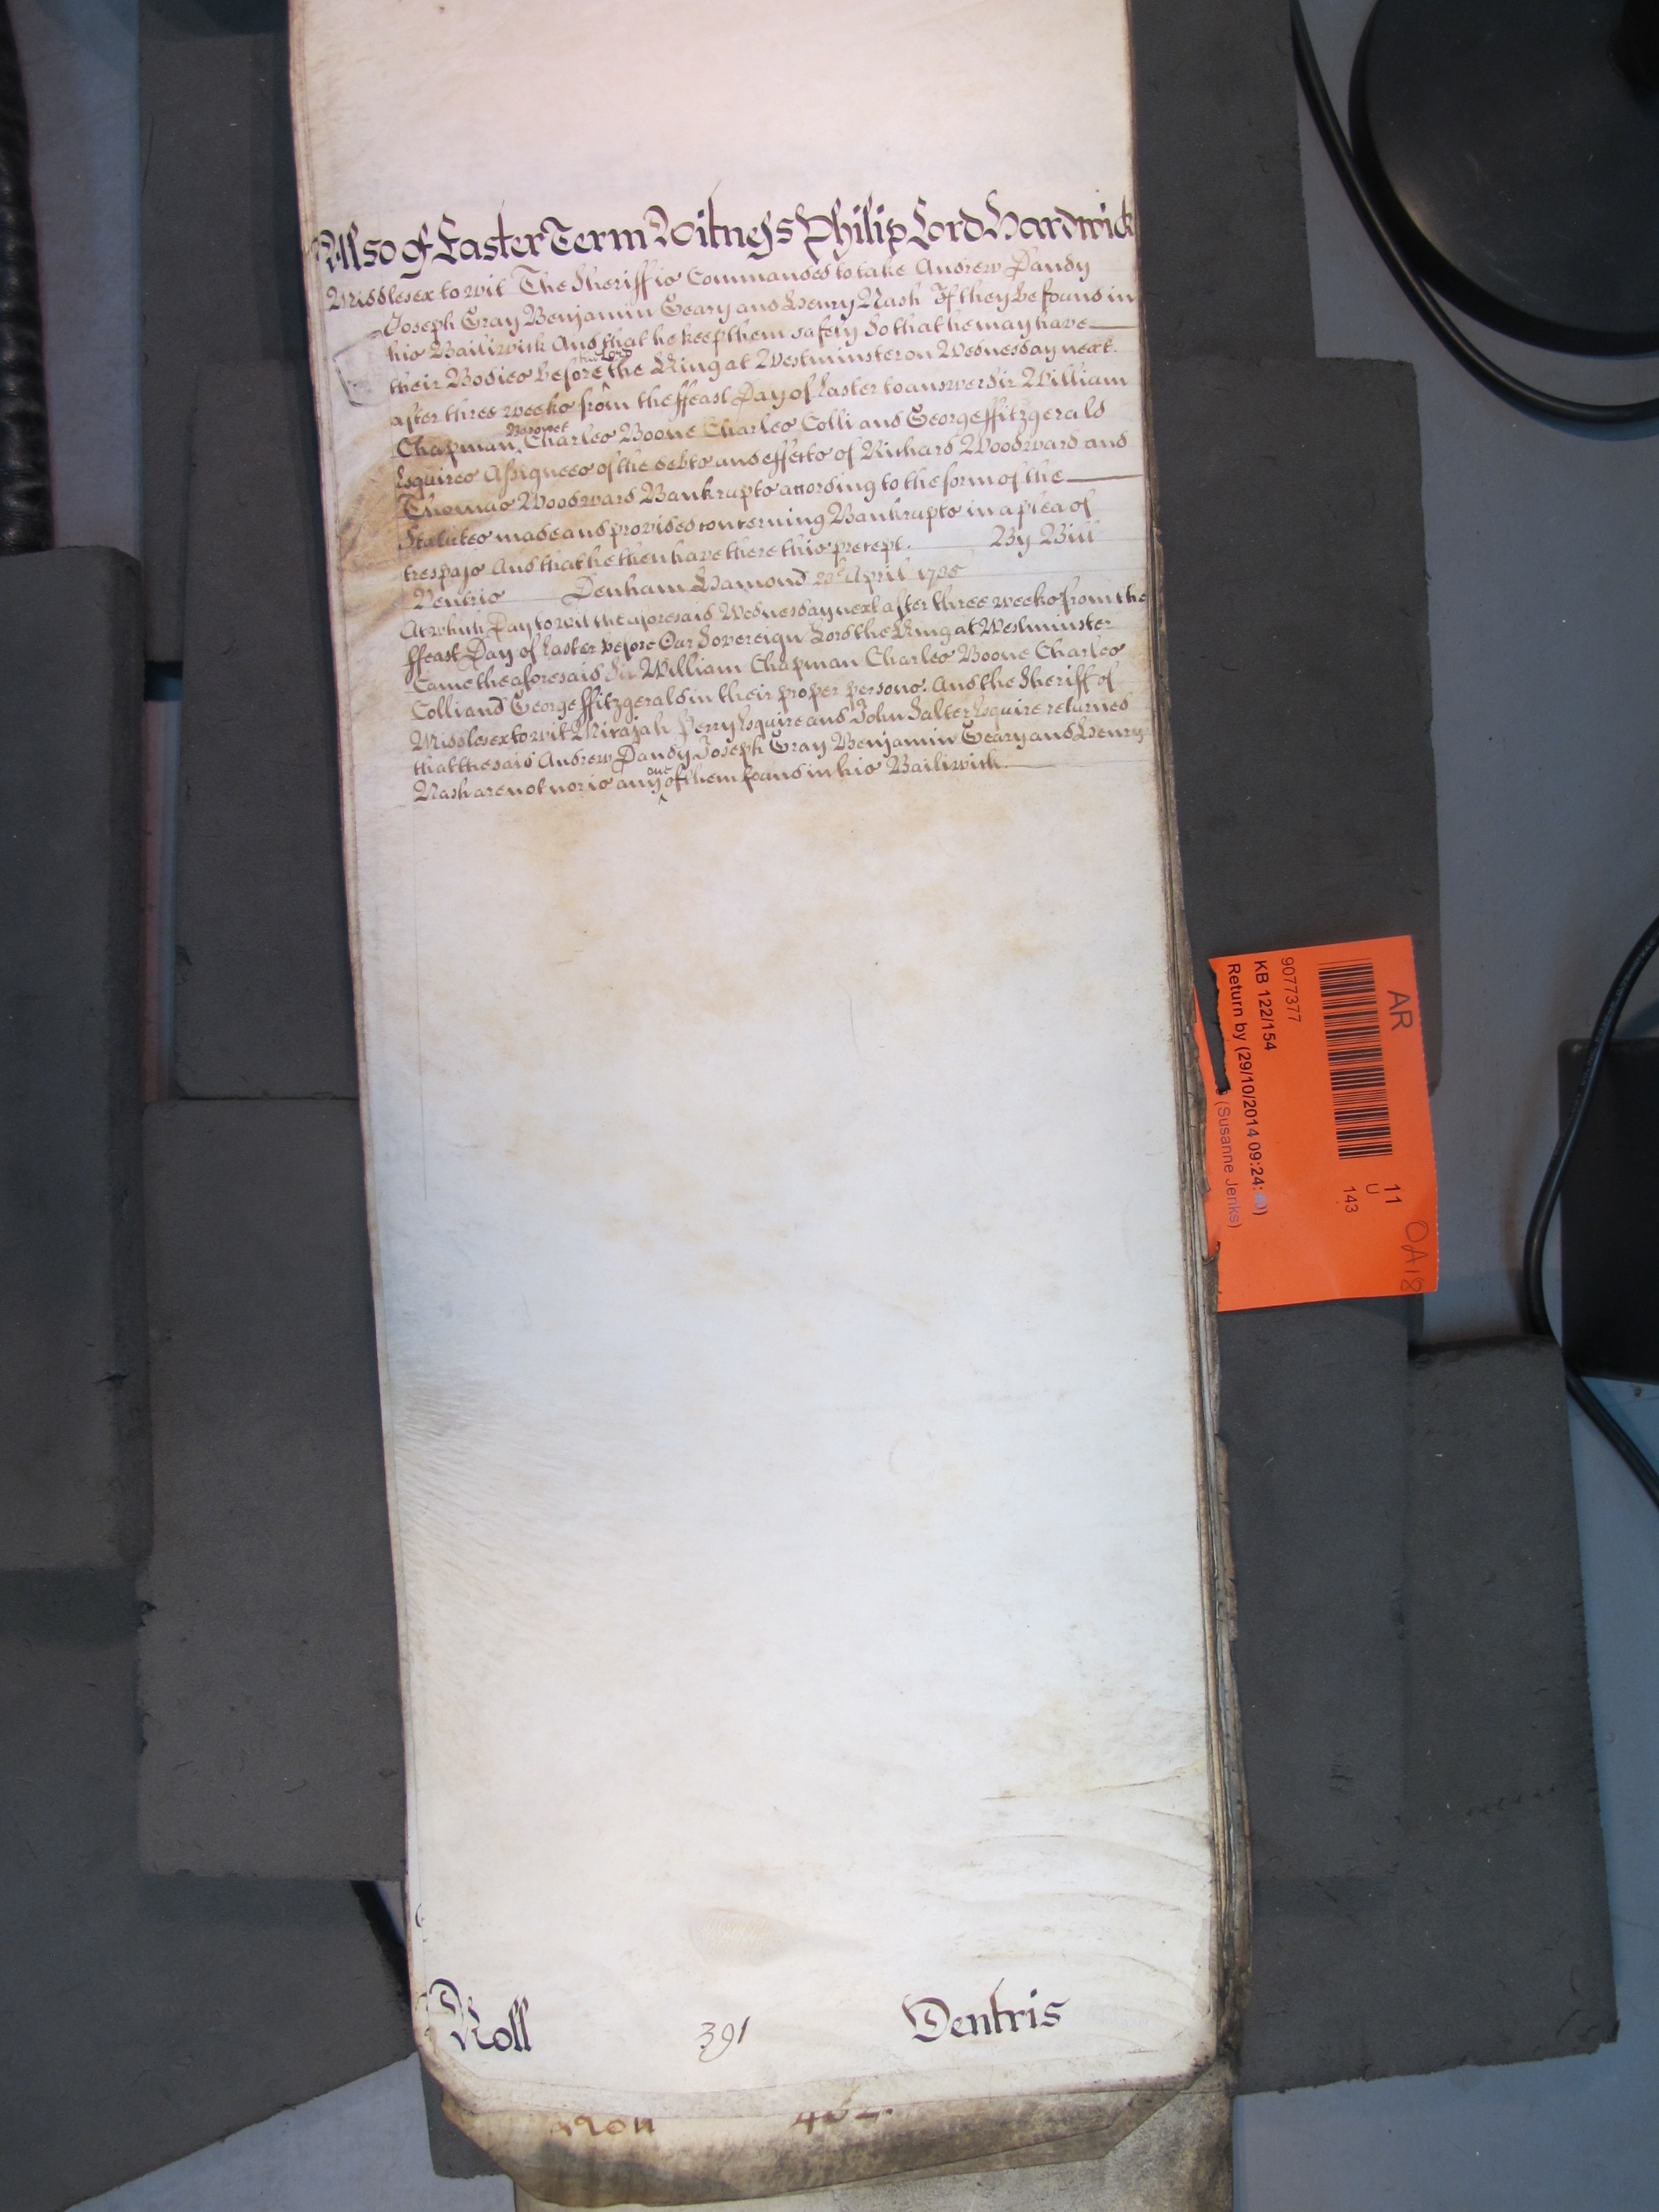 Also of Easter Term Witness Philip Lord Hardwick
Middlesex to wit The Sheriff is Commanded to take Andrew Dandy
Joseph Gray Benjamin Geary and Henry Nash If they be found in
his Bailiwick And that he keep them safely So that he may have
their Bodies before our Lord the King at Westminster on Wednesday next
after three weeks from the ffeast Day of Easter to answer Sir William
Chapman Baronet Charles Boone Charles Colli and George ffitzgerald
Esquires Assignees of the debts and effects of Richard Woodward and
Thomas Woodward Bankrupts according to the form of the
Statutes made and provided concerning Bankrupts in a plea of
trespass And that he then have there this precept. By Bill
Ventris Denham Hamond April 1735
At which Day to wit the aforesaid Wednesday next after three weeks from the
ffeast Day of Easter before Our Sovereign Lord the King at Westminster
Came the aforesaid Sir William Chapman Charles Boone Charles
Colli and George ffitzgerald in their proper persons. And the Sheriff of
Middlesex to wit Mirajah Perry Esquire and John Salter Esquire returned
that the said Andrew Dandy Joseph Gray Benjamin Geary and Henry
Nash are not nor is any one of them found in his Bailiwick.
Roll 391 Ventris
AR
11
U
143
OA18
9077377
KB 122/154
Return by (29/10/2014 09:24:
(Susanne Jenks)